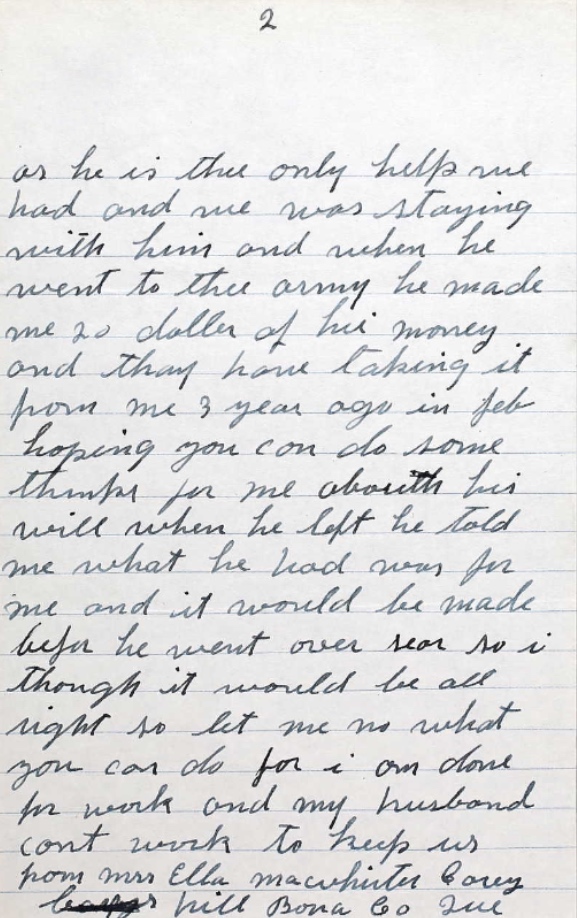 2
as he is thee only help we
had and we was staying
with him and when he
went to thee army he made
me 20 doller of his money
and thay have taking it
from me 3 year ago in feb
hoping you can do some
thinks for me abouth his
will when he left he told
me what he had was for
me and it would be made
befor he went over seas so i
though it would be all
right so let me no what
you can do for i am done
for work and my husband
cant work to keep us
from mrs Ella macwhirter Corey
hill Bona Co Que